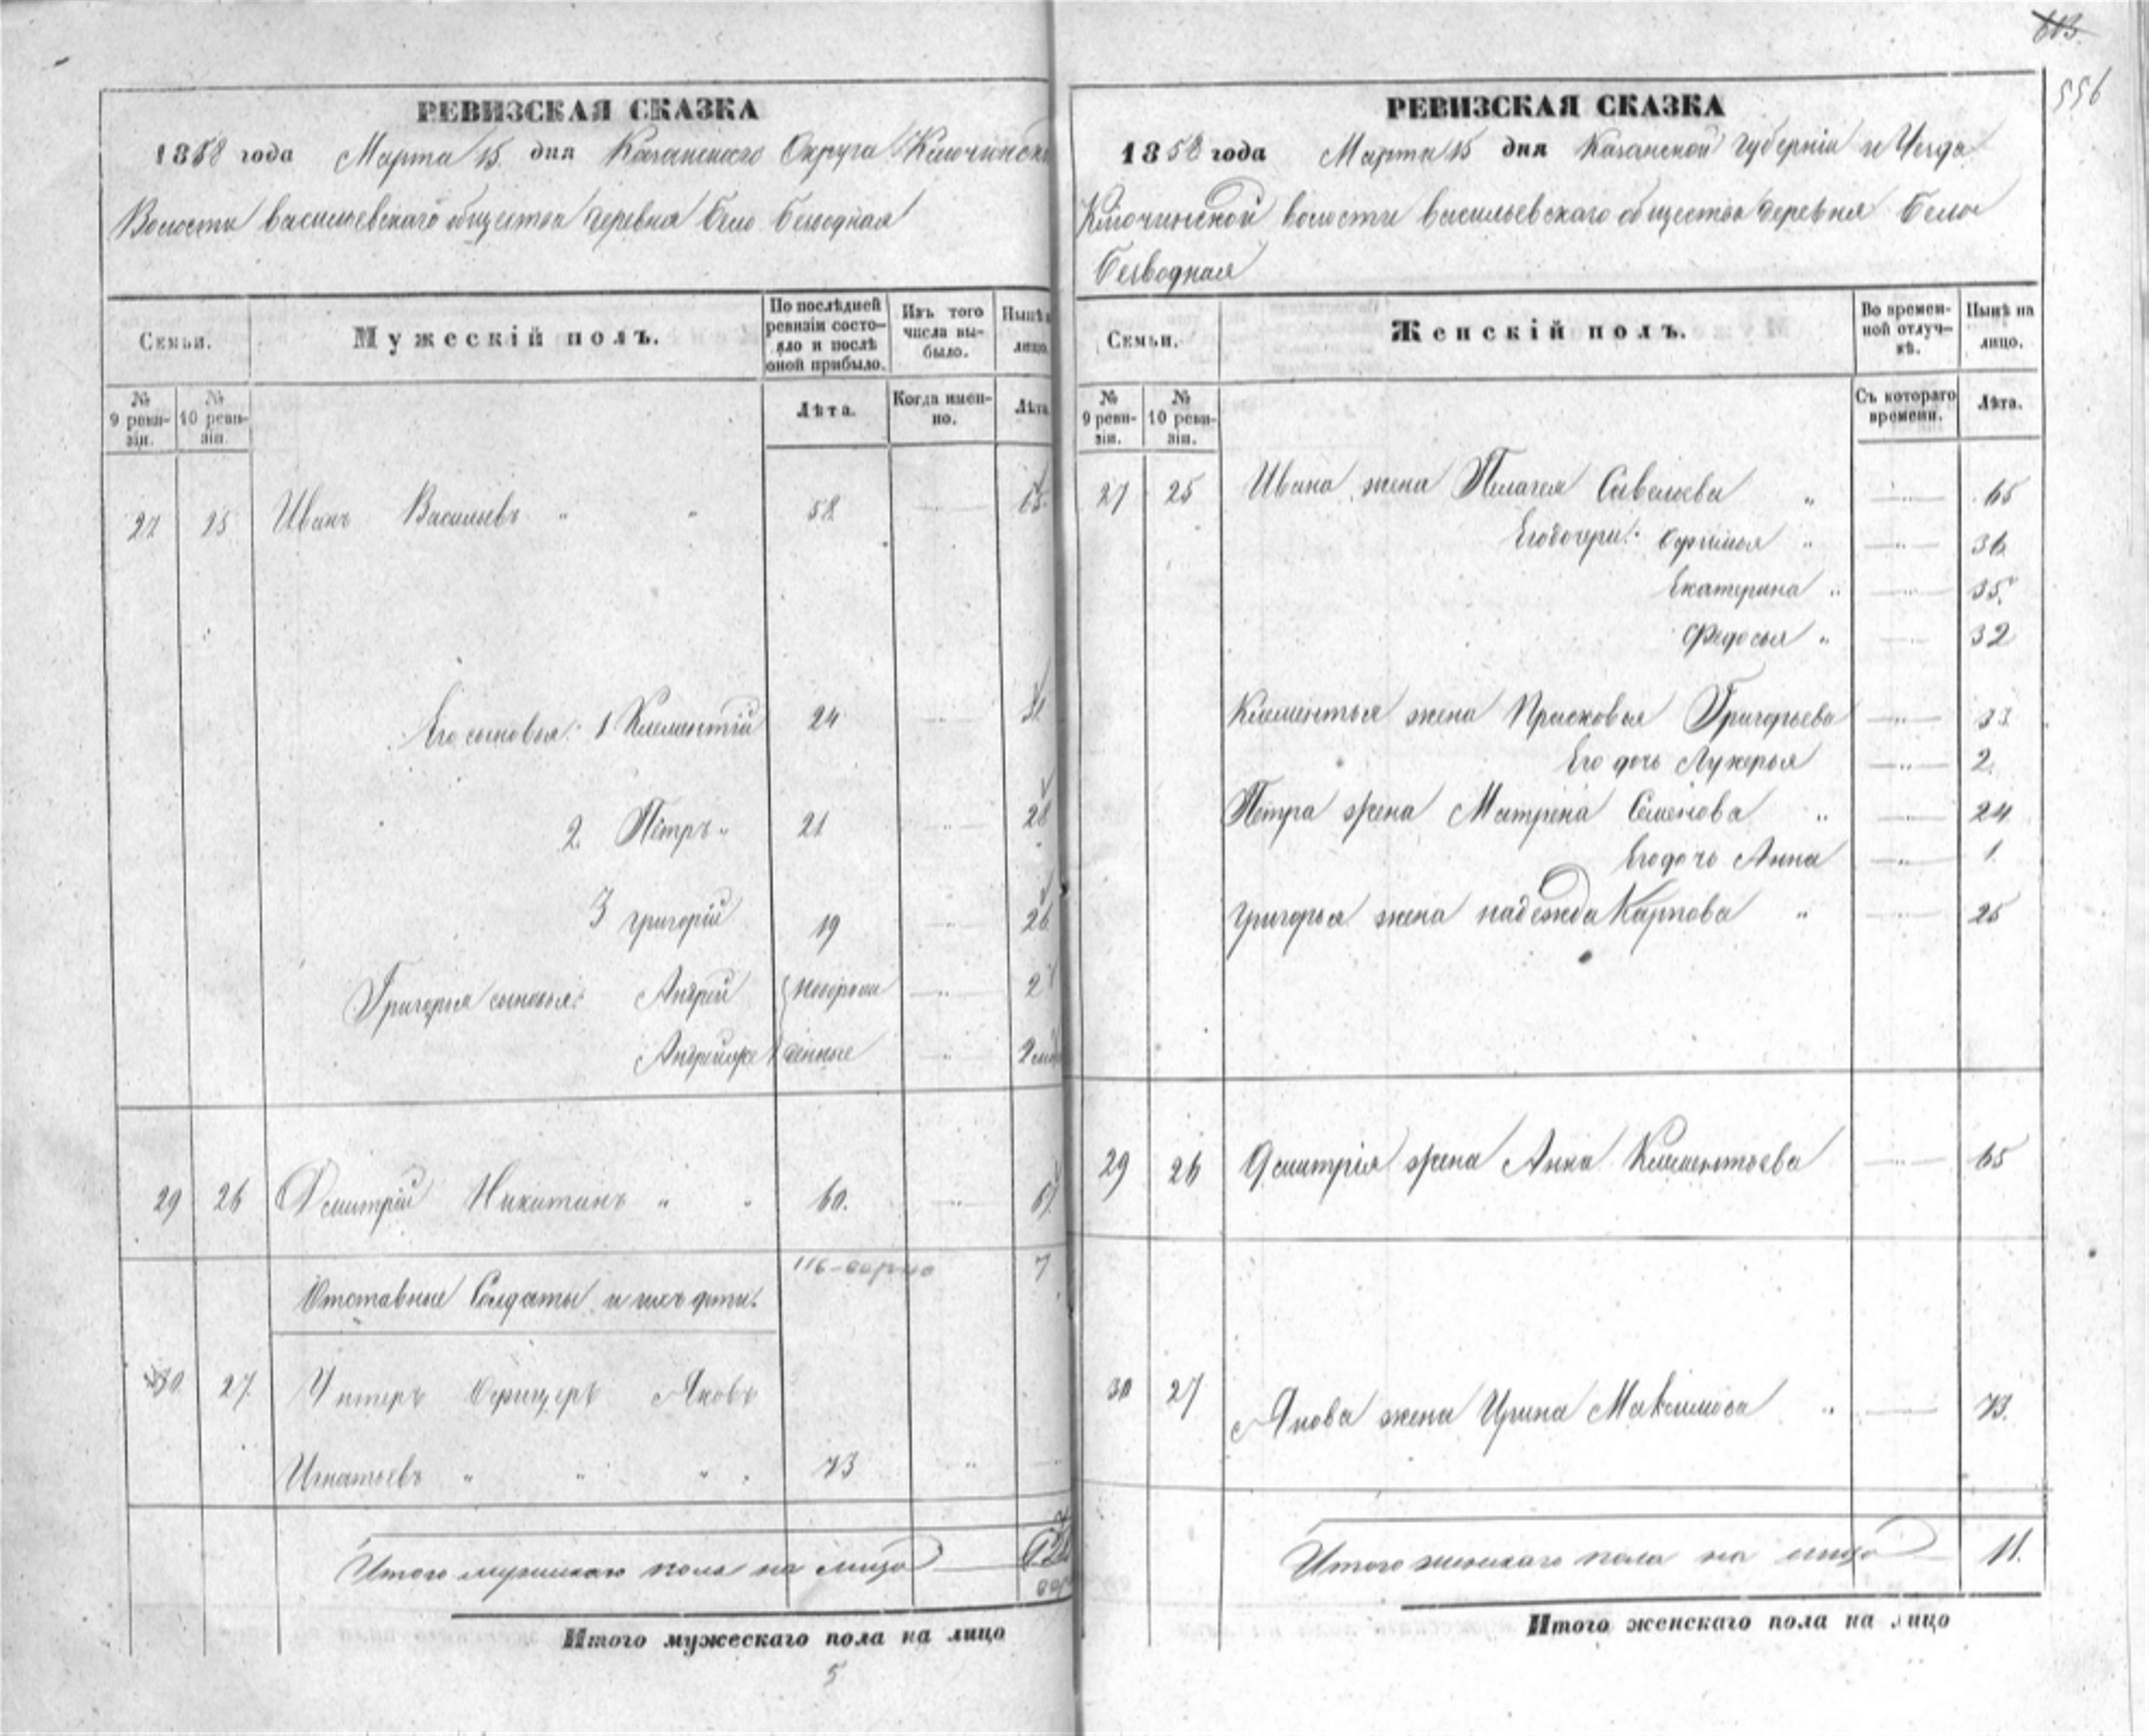 РЕВИЗСКАЯ СКАЗКА
1858 года Марта 15 дня Казанского Округа Ключинск
Волости Васильевскаго общества деревня Бело Безводная
Семьи.
Мужескій полъ.
По послѣдней ревизіи состояло и послѣ оной прибыло.
Изъ того числа выбыло.
Нынѣ
лицо.
№ 9 ревизіи.
№ 10 ревизіи.
Лѣта.
Когда именно.
Лѣта
27 25 Иванъ Васильевъ „ „ 58 65
Его сыновья: 1 Клементій 24 31
2 Петръ „ 21 28
3 Григорій 19 26
Григорья сыновья: Андрей новорож 2
Андрей же денные
29 26 Дмитрій Никитинъ „ „ 60. 67
116-верно 7
Отставные Солдаты и ихъ дѣти.
30 27. Унтеръ Офицеръ Яковъ
Игнатьевъ „ „ „ 73 „
Итого мужескаго пола на лицо
Итого мужескаго пола на лицо
5
613
556
РЕВИЗСКАЯ СКАЗКА
1858 года Марта 15 дня Казанской Губерніи и Уезда
Ключинской волости Васильевскаго общества деревня Бело
Безводная
Семьи.
Женскій полъ.
Во временной отлучкѣ.
Нынѣ на лицо.
№ 9 ревизіи.
№ 10 ревизіи.
Съ котораго времени.
Лѣта.
27 25 Ивана жена Пелагея Савельева „ 65
Его дочери: Офимья „ 36
Екатерина „ 35
Федосья „ 32
Клементья жена Прасковья Григорьева 33
Его дочь Лукерья 2
Петра жена Матрена Семенова „ 24
Его дочь Анна 1
Григорья жена надежда Карпова „ 25
29 26 Дмитрія жена Анна Клементьева 65
30 27 Якова жена Ирина Максимова „ 73.
Итого женскаго пола на лицо 11.
Итого женскаго пола на лицо